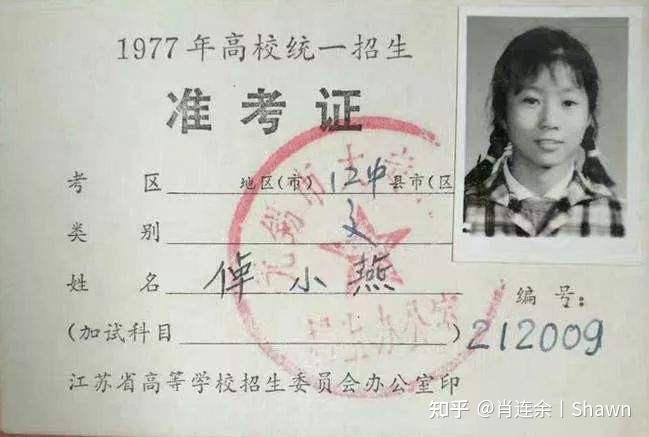 1977年高校统一招生
准考证
考 区 地区(市) 江中 县市(区
类 别 文
姓 名 倬小燕
编 号:
(加试科目 ) 212009
江苏省高等学校招生委员会办公室印
无锡市
招生办公室
知乎 @肖连余丨Shawn